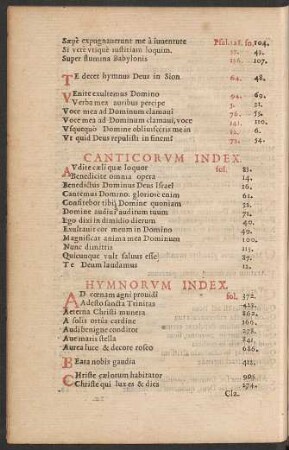 Sæpè expugnauerunt me à iuuentute Psal.128. fo.104.
Si verè vtique iustitiam loquim. 57. 45.
Super flumina Babylonis 136. 107.
TE decet hymnus Deus in Sion 64. 48.
VEnite exultemus Domino 94. 62.
Verba mea auribus percipe 5.
Voce mea ad Dominum clamaui 76. 55.
Voce mea ad Dominum clamaui, voce 141. 110.
Vsquequò Domine obliuisceris me in 12. 6.
Vt quid Deus repulisti in finem? 73. 54.
CANTICORVM INDEX.
AVdite cæli quæ loquor fol. 21.
Benedicite omnia opera 14.
Benedictus Dominus Deus Israel 16.
Cantemus Domino, gloriosè enim 61.
Confitebor tibi Domine quoniam
Domine audiui auditum tuum 71.
Ego dixi in dimidio dierum 40.
Exultauit cor meum in Domino 50.
Magnificat anima mea Dominum 100.
Nunc dimittis 115.
Quicunque vult saluus esse 27.
Te Deum laudamus 12.
HYMNORVM INDEX.
AD cœnam agni prouidi fol. 372.
Adesto sancta Trinitas 423.
Aeterna Christi munera 862.
A solis ortus cardine 166.
Audi benigne conditor 278.
Aue maris stella 841.
Aurea luce & decore roseo 686.
BEata nobis gaudia 412.
CHriste cælorum habitator 905.
Christe qui lux es & dies 274.
Cla.